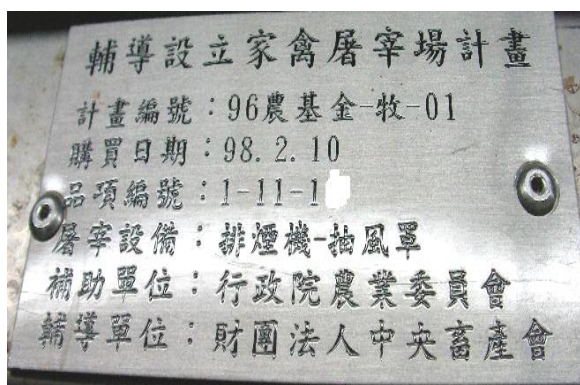 輔導設立家禽屠宰場計畫
計畫編號：96農基金-牧-01
購買日期：98.2.10
品項編號：1-11-1
屠宰設備：排煙機-抽風罩
補助單位：行政院農業委員會
輔導單位：財團法人中央畜產會